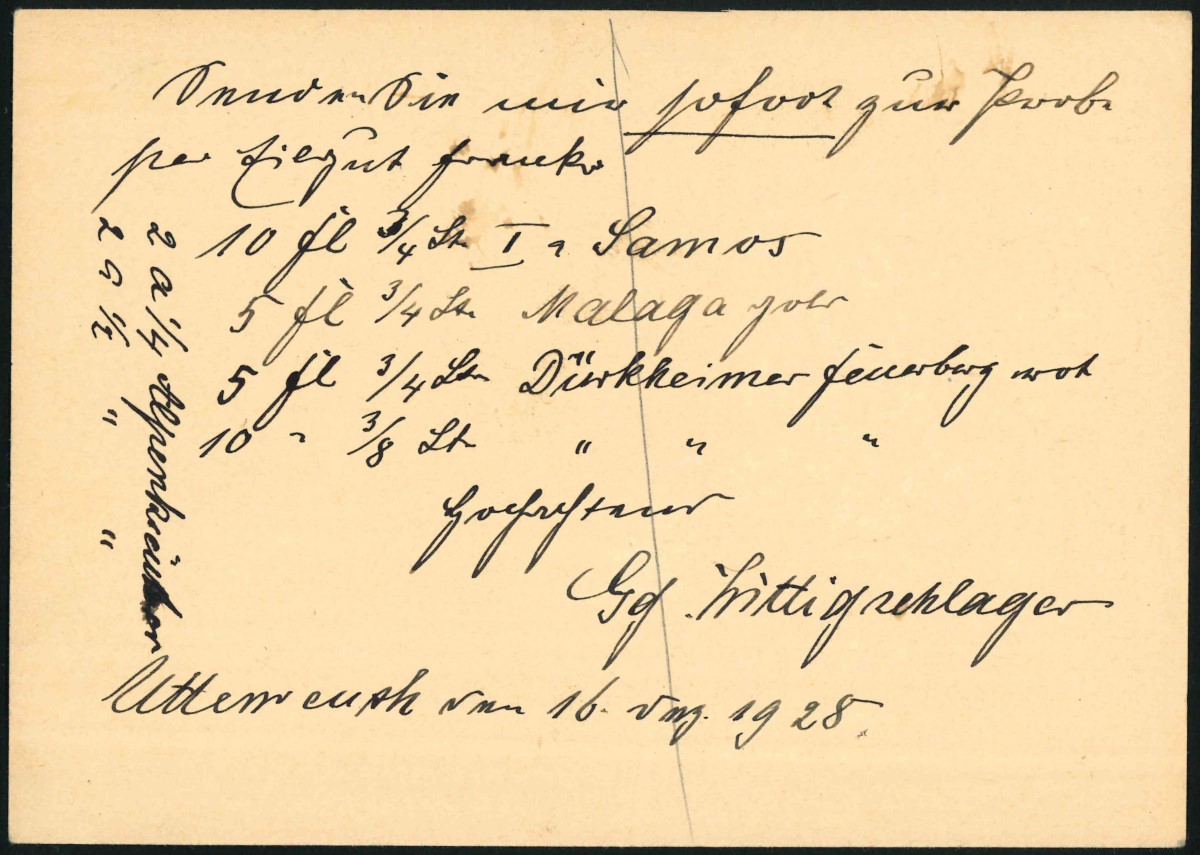 Senden Sie mir sofort zur Probe
per Eilgut franko
10 Fl 3/4 Ltr I a Samos
5 Fl 3/4 Ltr Malaga
5 Fl 3/4 Ltr Dürkheimer Feuerberg rot
10 " 3/8 Ltr " " "
Hochachtend
Gg. Wittigschlager
Uttenreuth den 16. Dez. 1928.
2 a 1/4 Alpenkräuter
2 a 1/2 " "